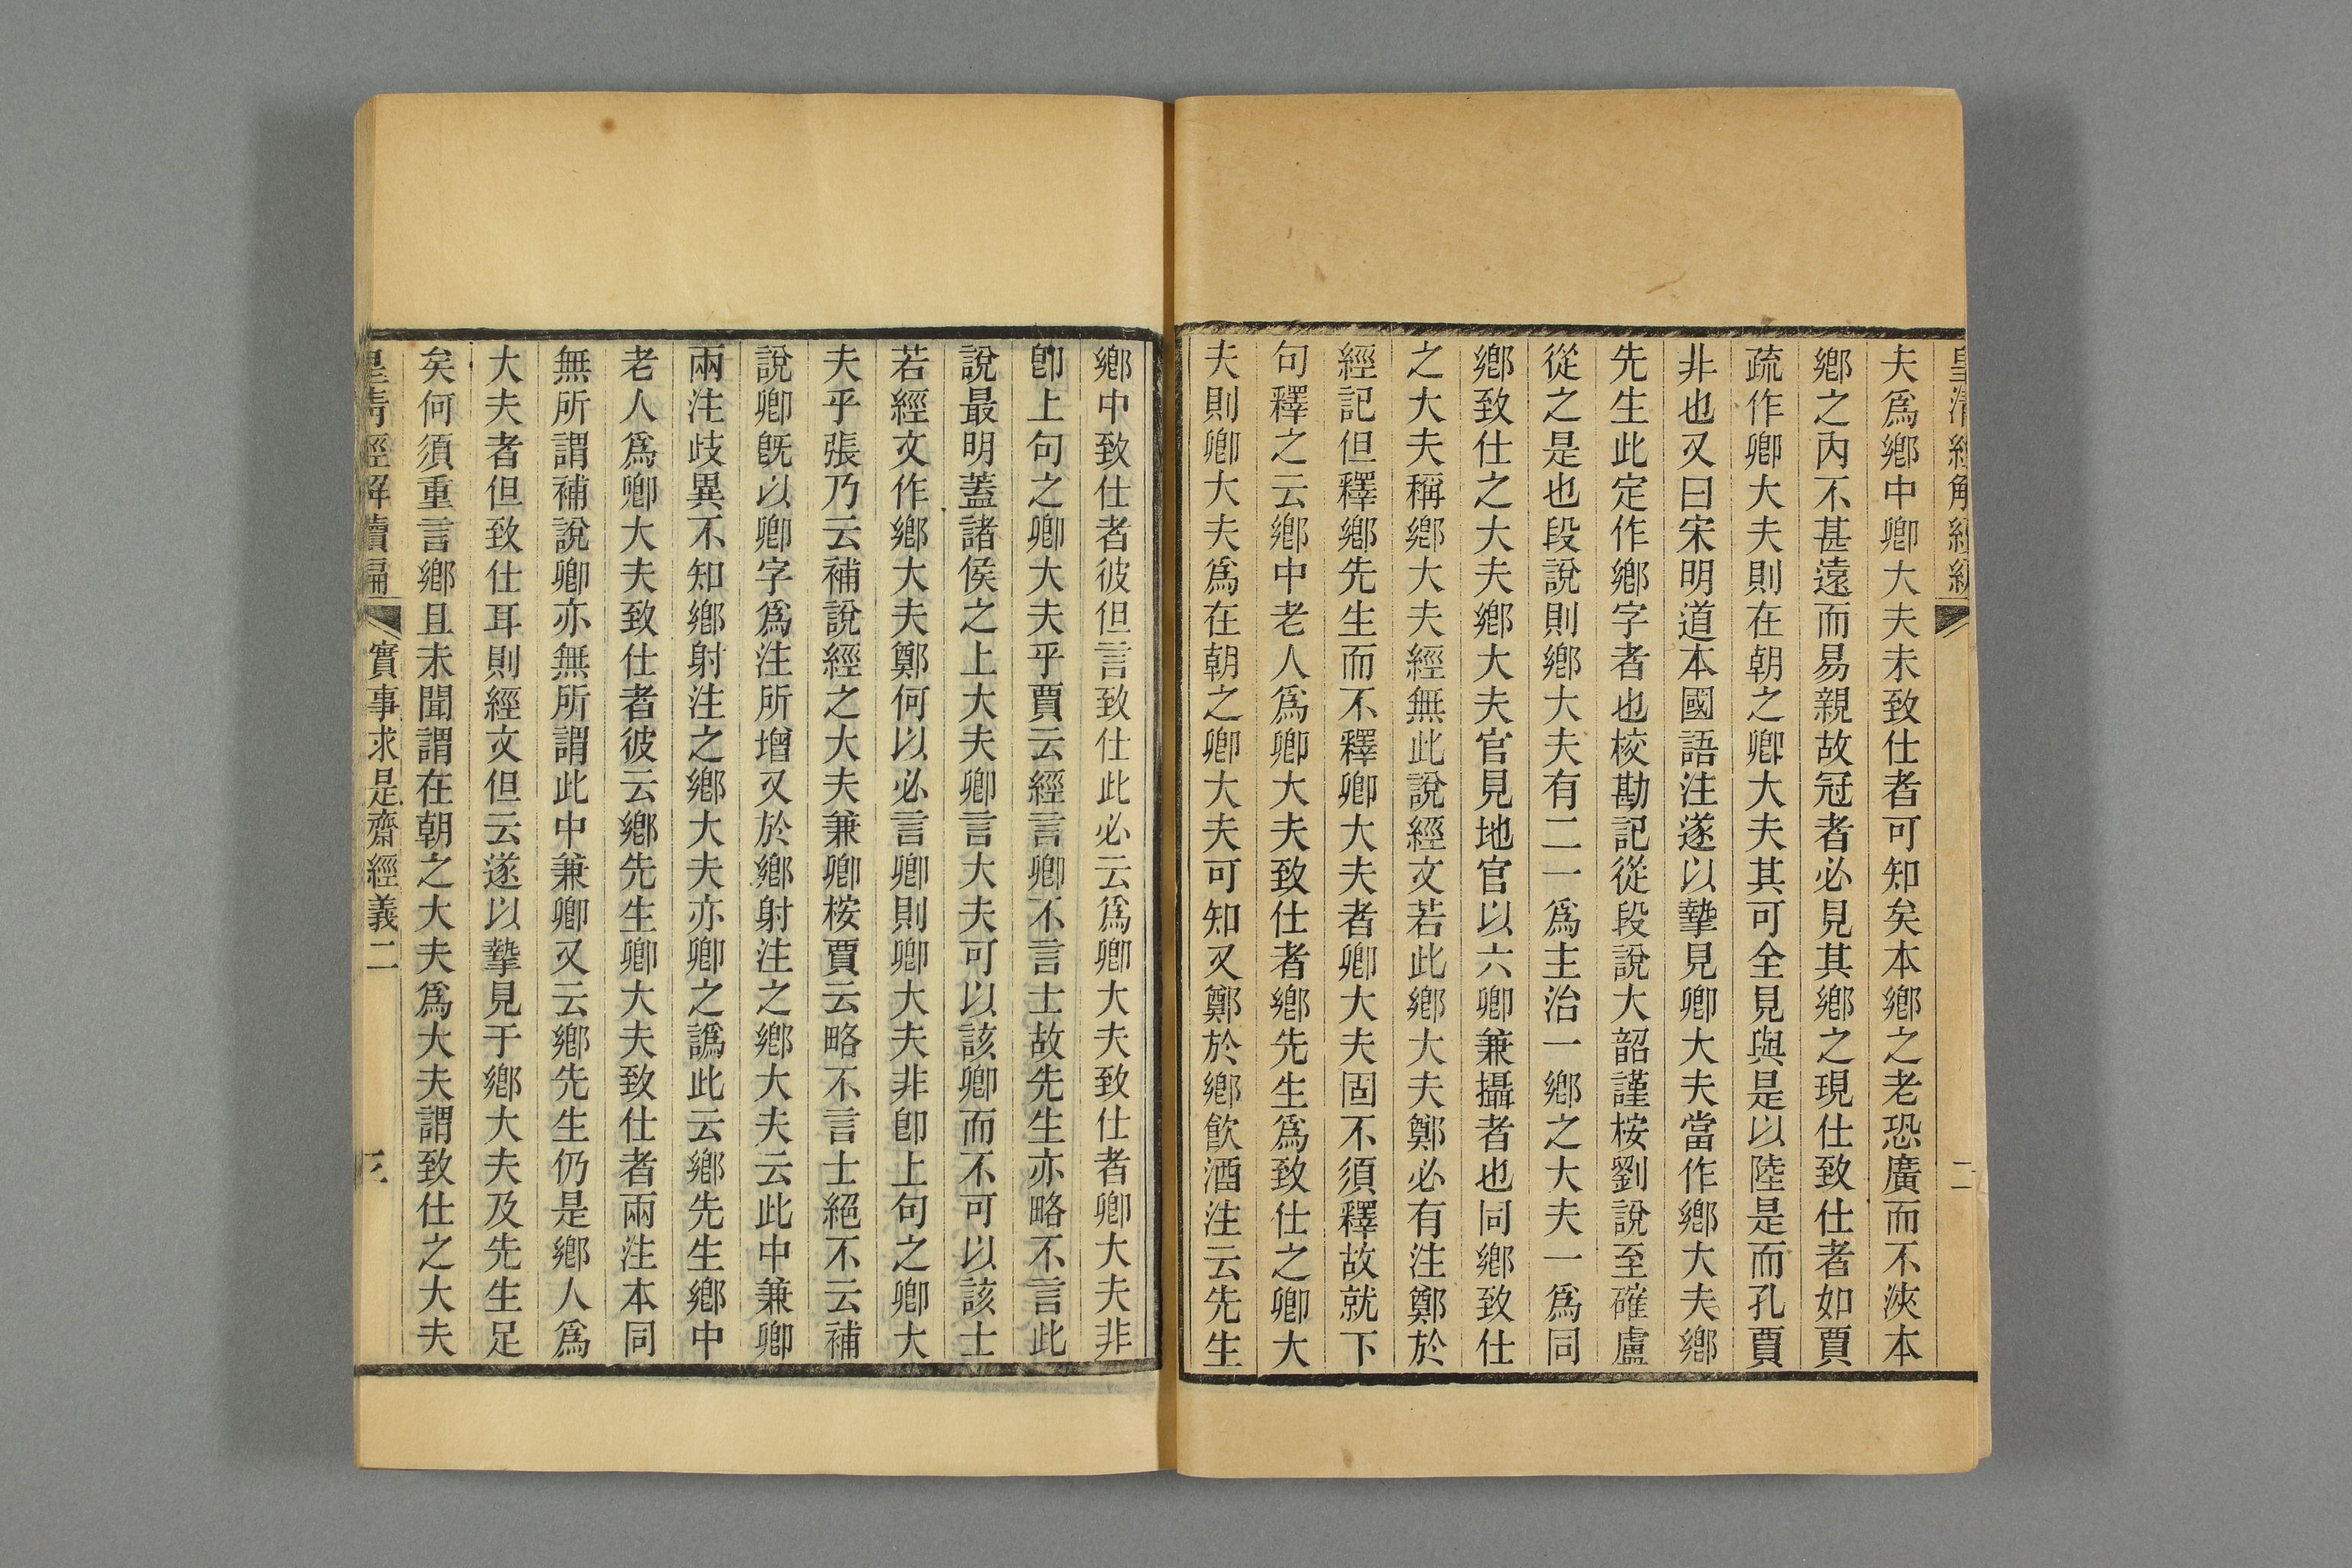 夫爲鄉中卿大夫未致仕者可知矣本鄉之老恐廣而不浹本
鄉之內不甚遠而易親故冠者必見其鄉之現仕致仕者如賈
疏作卿大夫則在朝之卿大夫其可全見與是以陸是而孔賈
非也又曰宋明道本國語注遂以摯見卿大夫當作鄉大夫鄉
先生此定作鄉字者也校勘記從段說大韶謹桉劉說至確盧
從之是也段說則鄉大夫有二一爲主治一鄉之大夫一爲同
鄉致仕之大夫鄉大夫官見地官以六卿兼攝者也同鄉致仕
之大夫稱鄉大夫經無此說經文若此鄉大夫鄭必有注鄭於
經記但釋鄉先生而不釋卿大夫者卿大夫固不須釋故就下
句釋之云鄉中老人爲卿大夫致仕者鄉先生爲致仕之卿大
夫則卿大夫爲在朝之卿大夫可知又鄭於鄉飮酒注云先生
鄉中致仕者彼但言致仕此必云爲卿大夫致仕者卿大夫非
卽上句之卿大夫乎賈云經言卿不言士故先生亦略不言此
說最明蓋諸侯之上大夫卿言大夫可以該卿而不可以該士
若經文作鄉大夫鄭何以必言卿則卿大夫非卽上句之卿大
夫乎張乃云補說經之大夫兼卿桉賈云略不言士絕不云補
說卿旣以卿字爲注所增又於鄉射注之鄉大夫云此中兼卿
兩注歧異不知鄉射注之鄉大夫亦卿之譌此云鄉先生鄉中
老人爲卿大夫致仕者彼云鄉先生卿大夫致仕者兩注本同
無所謂補說卿亦無所謂此中兼卿又云鄉先生仍是鄉人爲
大夫者但致仕耳則經文但云遂以摯見于鄉大夫及先生足
矣何須重言鄉且未聞謂在朝之大夫爲大夫謂致仕之大夫
皇清經解續編 實事求是齋經義二 三